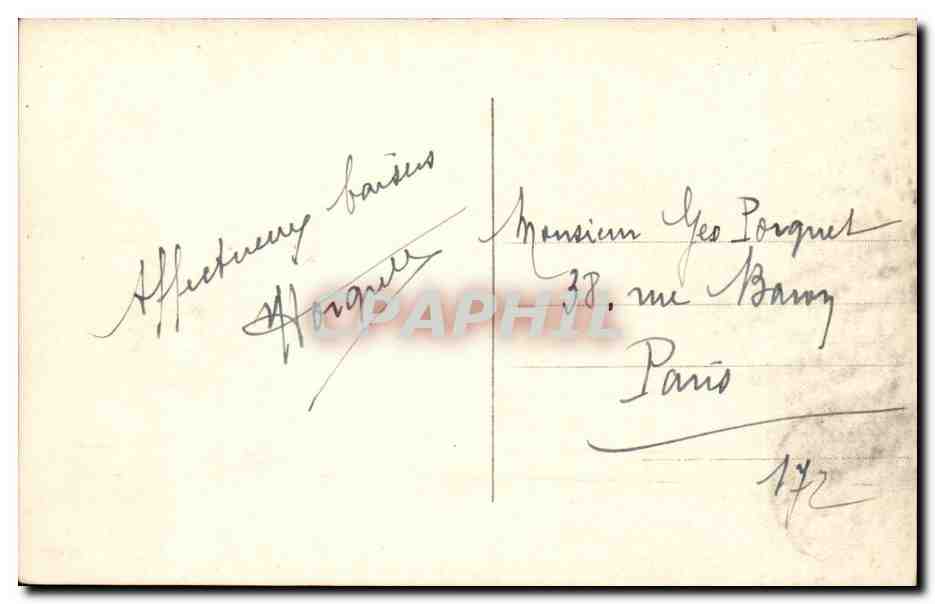 Affectueux baisers
Monsieur Geo Porquet
38, rue Baron
Paris
172
CPAPHIL